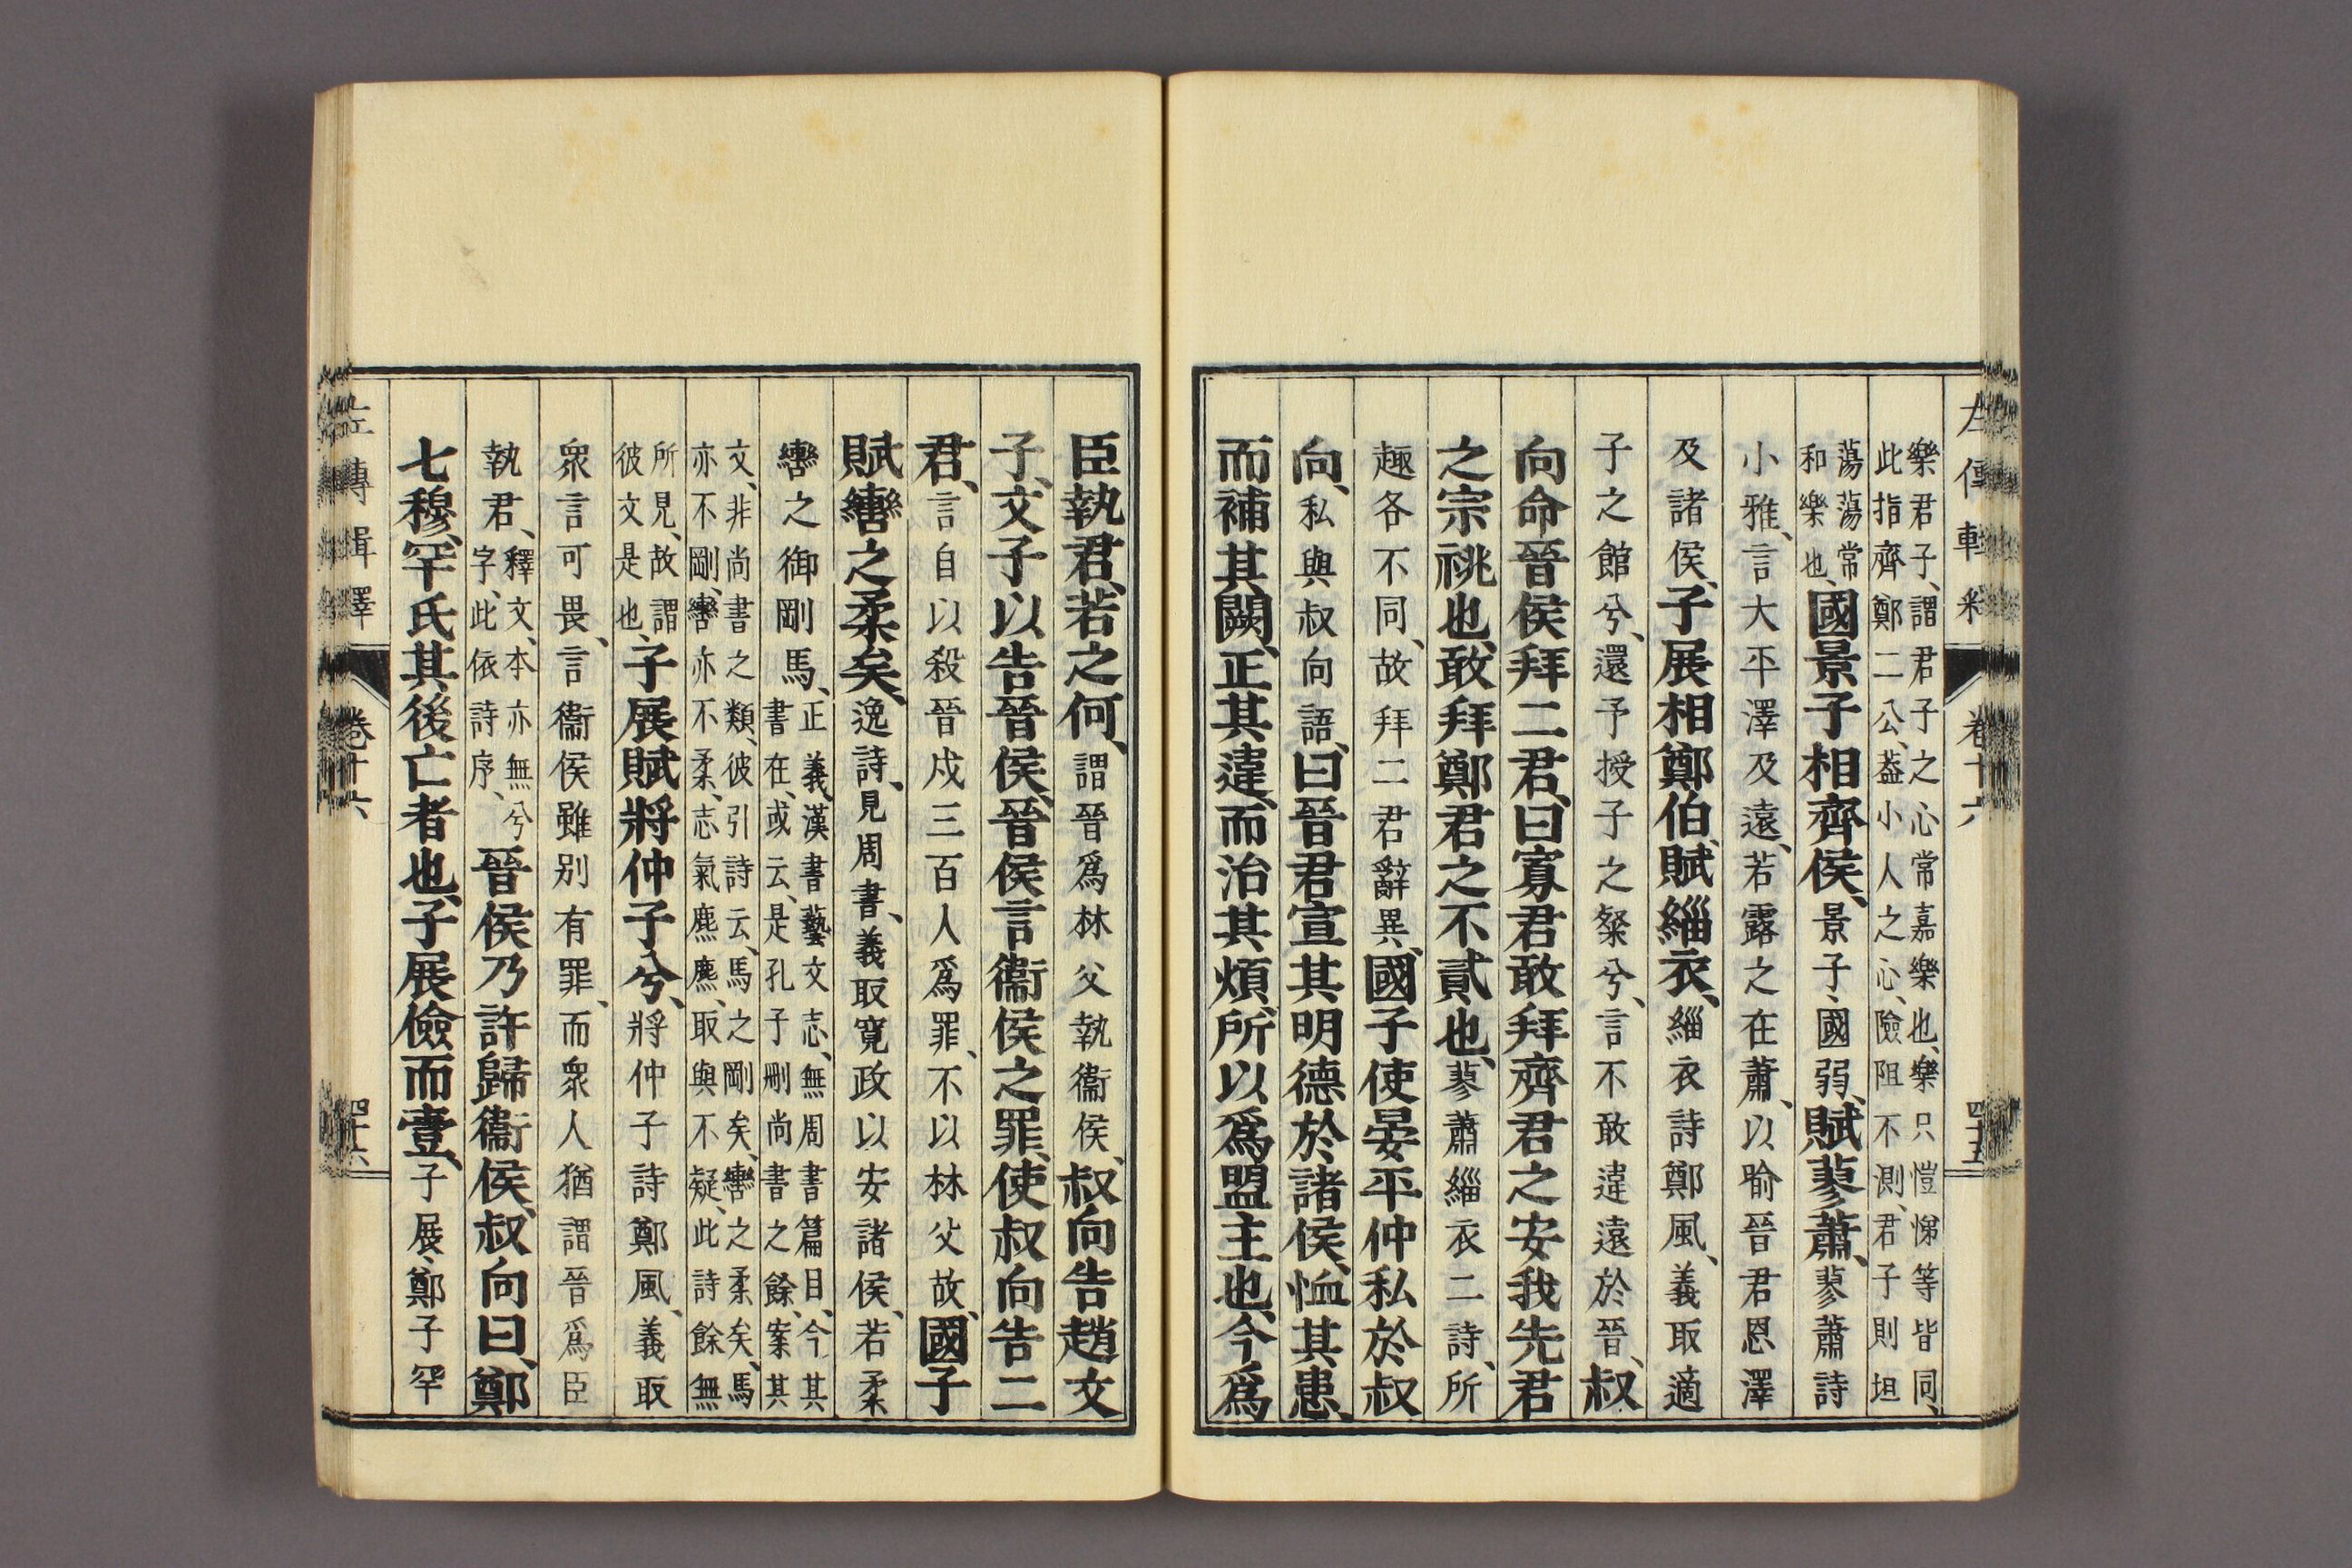 左傳輯釋 卷十六 四十五
樂君子、謂君子之心常嘉樂也、樂只愷悌等皆同、
此指齊鄭二公、葢小人之心、險阻不測、君子則坦
蕩蕩常
和樂也、國景子相齊侯、景子、國弱、賦蓼蕭、蓼蕭詩
小雅、言大平澤及遠、若露之在蕭、以喻晉君恩澤
及諸侯、子展相鄭伯、賦緇衣、緇衣詩鄭風、義取適
子之館兮、還予授子之粲兮、言不敢違遠於晉、叔
向命晉侯拜二君、曰寡君敢拜齊君之安我先君
之宗祧也、敢拜鄭君之不貳也、蓼蕭緇衣二詩、所
趣各不同、故拜二君辭異、國子使晏平仲私於叔
向、私與叔向語、曰晉君宣其明德於諸侯、恤其患、
而補其闕、正其違、而治其煩、所以爲盟主也、今爲
臣執君、若之何、謂晉爲林父執衞侯、叔向告趙文
子、文子以告晉侯、晉侯言衞侯之罪、使叔向告二
君、言自以殺晉戍三百人爲罪、不以林父故、國子
賦轡之柔矣、逸詩、見周書、義取寬政以安諸侯、若柔
轡之御剛馬、正義、漢書藝文志、無周書篇目、今其
書在、或云、是孔子刪尚書之餘、案其
文、非尚書之類、彼引詩云、馬之剛矣、轡之柔矣、馬
亦不剛、轡亦不柔、志氣麃麃、取與不疑、此詩餘無
所見、故謂
彼文是也、子展賦將仲子兮、將仲子詩鄭風、義取
衆言可畏、言衞侯雖别有罪、而衆人猶謂晉爲臣
執君、釋文、本亦無兮
字、此依詩序、晉侯乃許歸衞侯、叔向曰、鄭
七穆、罕氏其後亡者也、子展儉而壹、子展、鄭子罕
左傳輯釋 卷十六 四十六